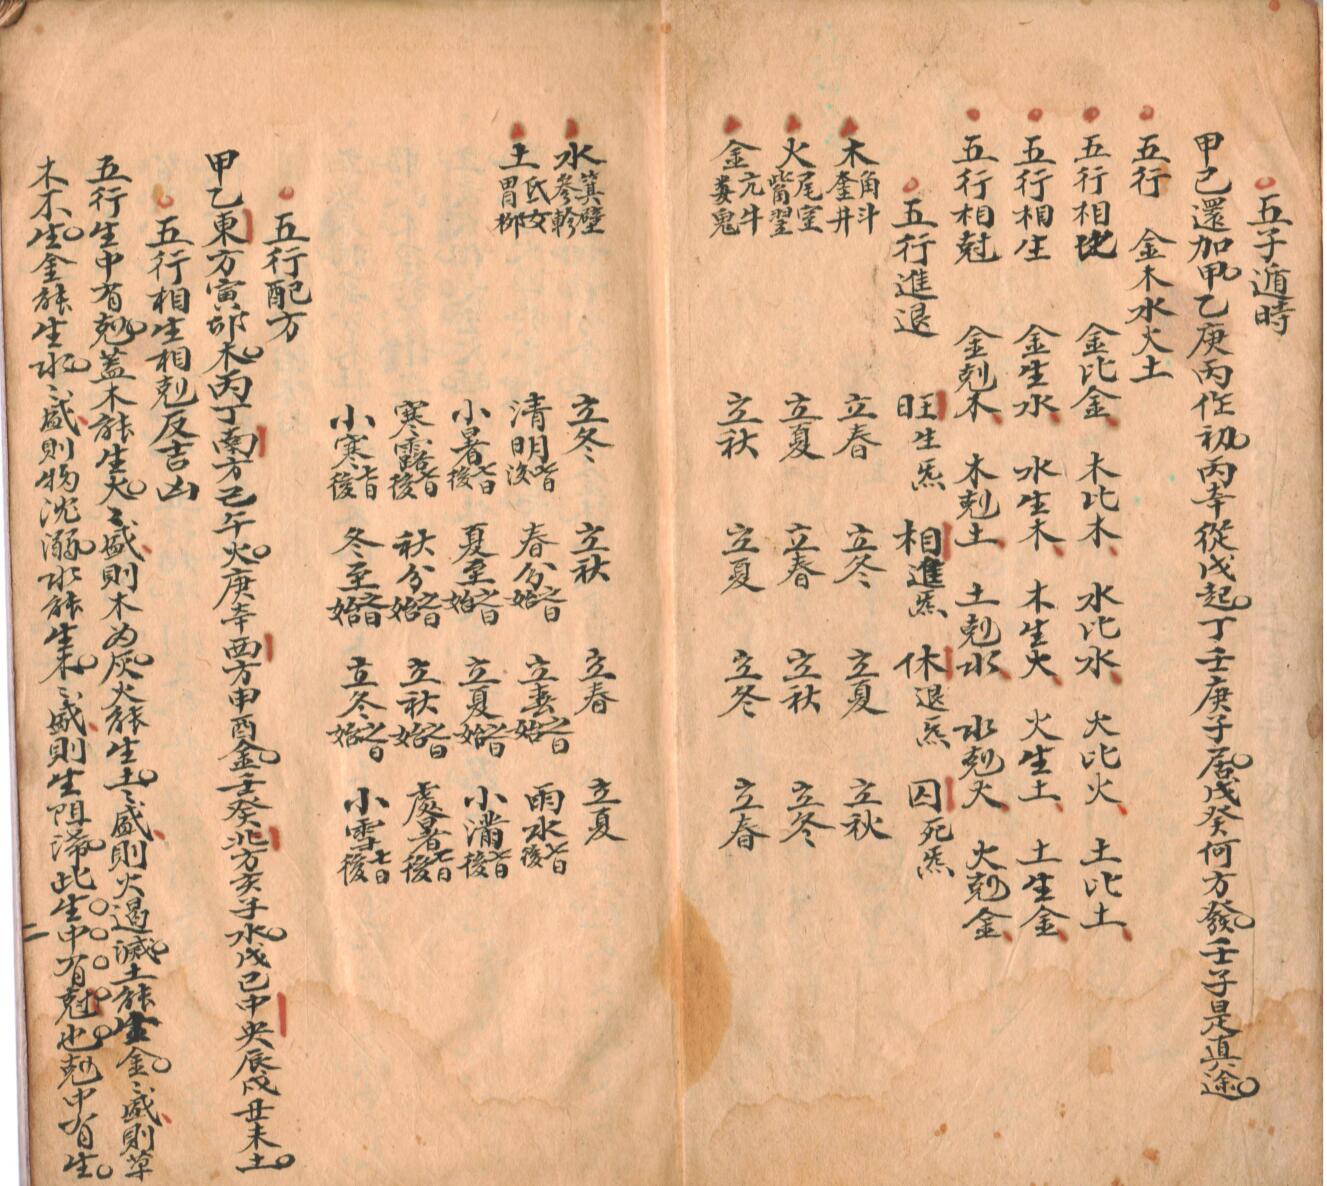 五子遁時
甲己還加甲乙庚丙作初丙辛從戊起丁壬庚子居戊癸何方發壬子是真途
五行　金木水火土
五行相比　金比金　木比木　水比水　火比火　土比土
五行相生　金生水　水生木　木生火　火生土　土生金
五行相尅　金尅木　木尅土　土尅水　水尅火　火尅金
五行進退　旺生炁　相進炁　休退炁　囚死炁
木角斗奎井　立春　立冬　立夏　立秋
火尾室觜翌　立夏　立春　立秋　立冬
金亢牛婁鬼　立秋　立夏　立冬　立春
水箕壁參軫　立冬　立秋　立春　立夏
土氐女胃柳　清明七日後　春分之日始　立春之日始　雨水七日後
小暑七日後　夏至之日始　立夏之日始　小滿七日後
寒露七日後　秋分之日始　立秋之日始　處暑七日後
小寒七日後　冬至之日始　立冬之日始　小雪七日後
五行配方
甲乙東方寅卯木丙丁南方巳午火庚辛西方申酉金壬癸北方亥子水戊己中央辰戌丑未土
五行相生相尅反吉凶
五行生中有尅蓋木能生火〻盛則木為灰火能生土〻盛則火遏滅土能生金〻盛則草
木不生金能生水〻盛則物沈溺水能生木〻盛則生阻滯此生中有尅也尅中有生
二